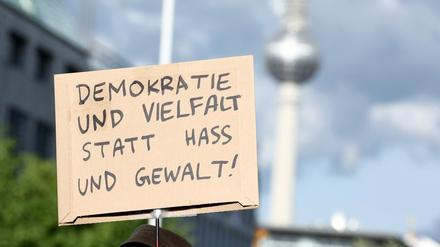 DEMOKRATIE
UND VIELFALT
STATT HASS
UND GEWALT!